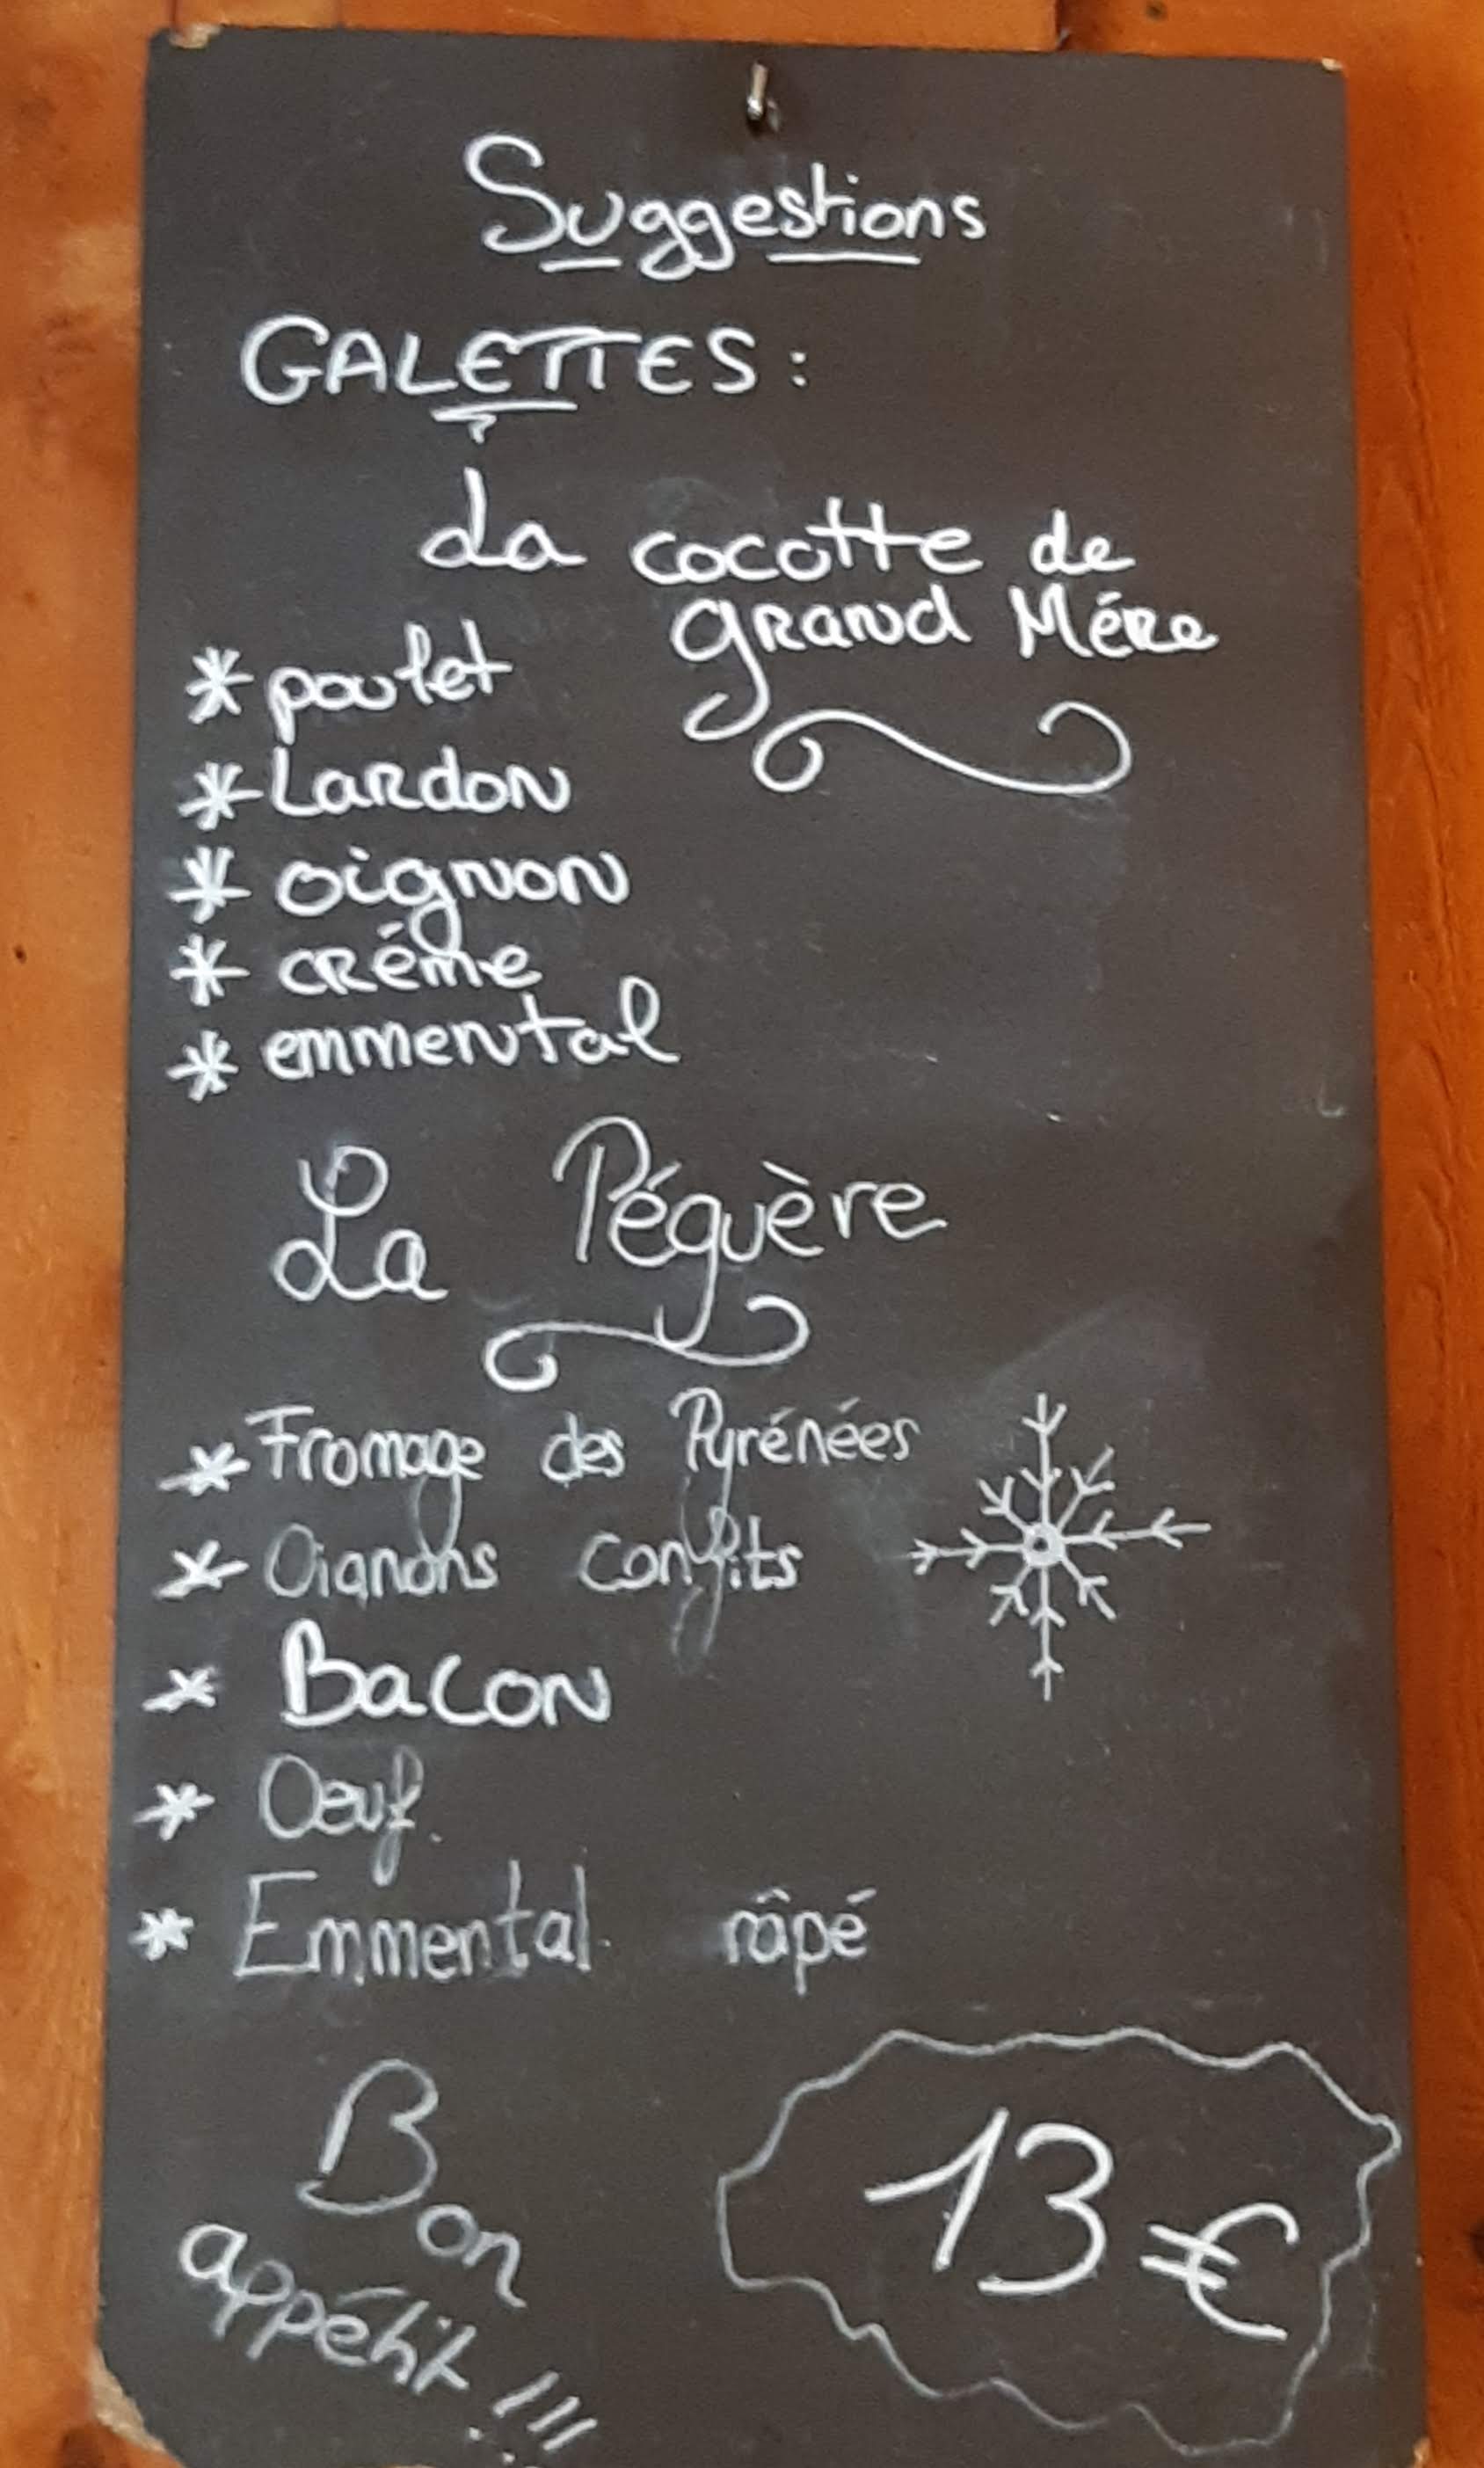 Suggestions
GALETTES :
La cocotte de
grand Mére
* poulet
* Lardon
* oignon
* créme
* emmental
La Péguère
* Fromage des Pyrénées
* Oignons confits
* Bacon
* Oeuf.
* Emmental râpé
Bon
appétit !!!
13 €